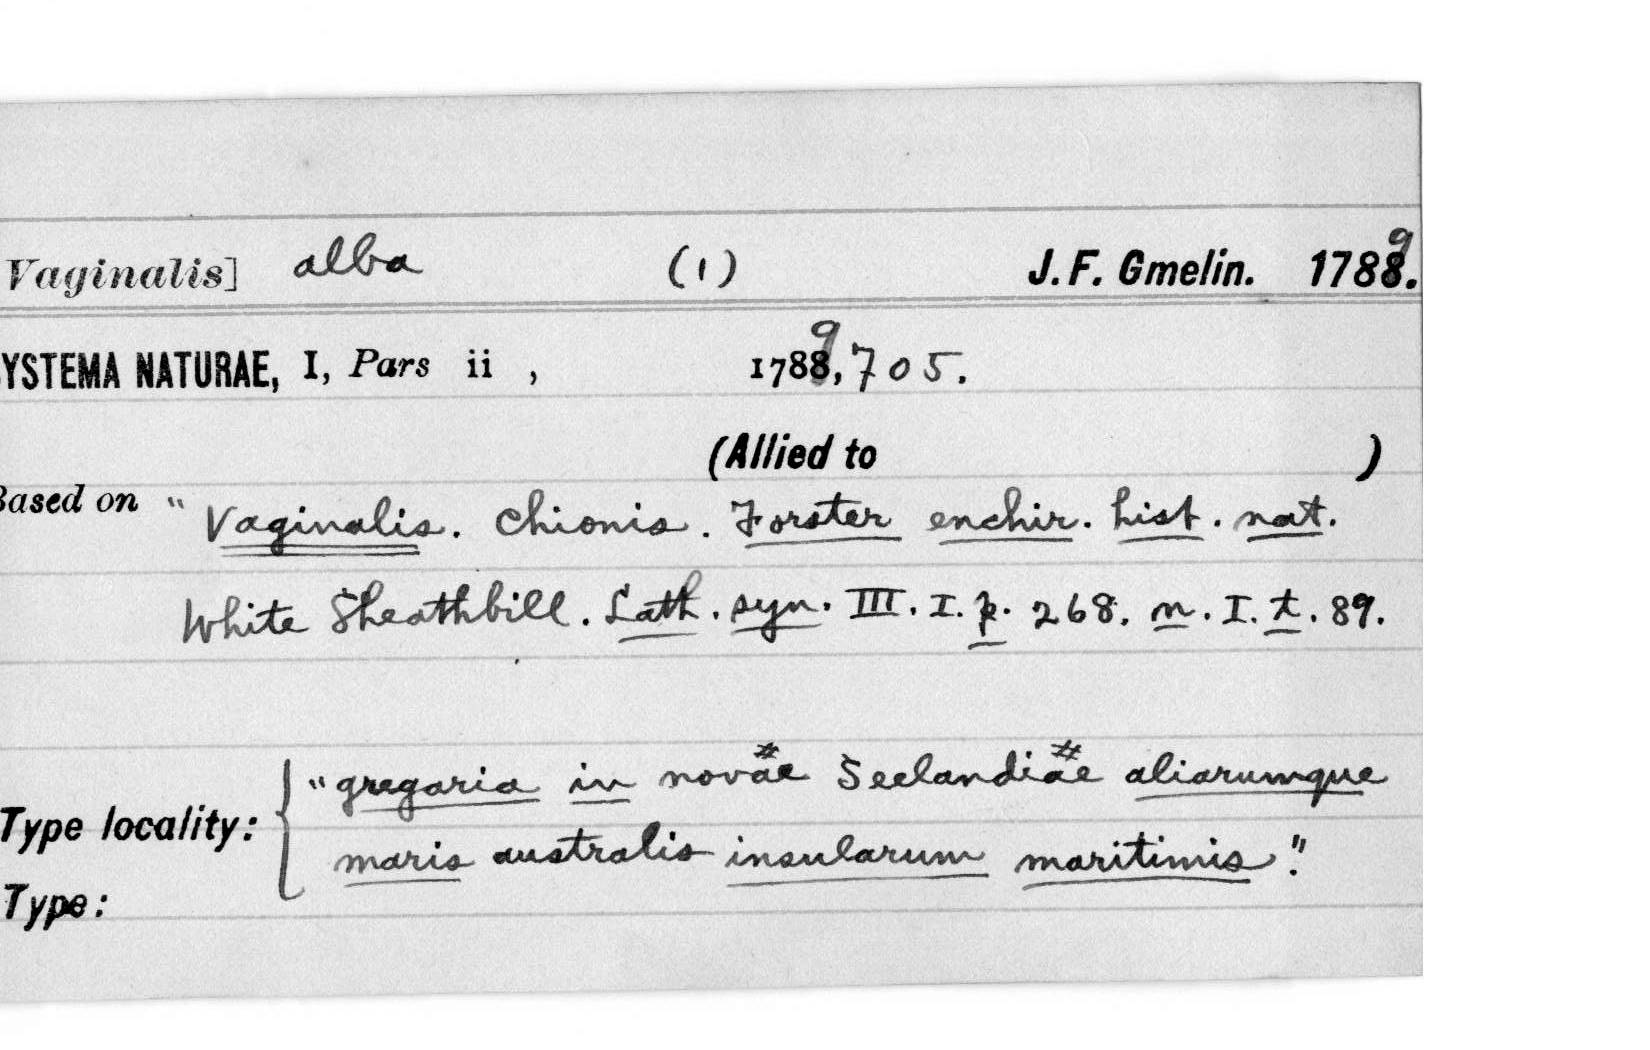 Vaginalis] alba (1) J. F. Gmelin. 1789.
YSTEMA NATURAE, I, Pars ii , 1789, 705.
(Allied to )
Based on " Vaginalis. Chionis. Forster enchir. hist. nat.
White Sheathbill. Lath. syn. III. I. p. 268. n. I. t. 89.
Type locality: { "gregaria in novae Seelandiae aliarumque
maris australis insularum maritimis".
Type: